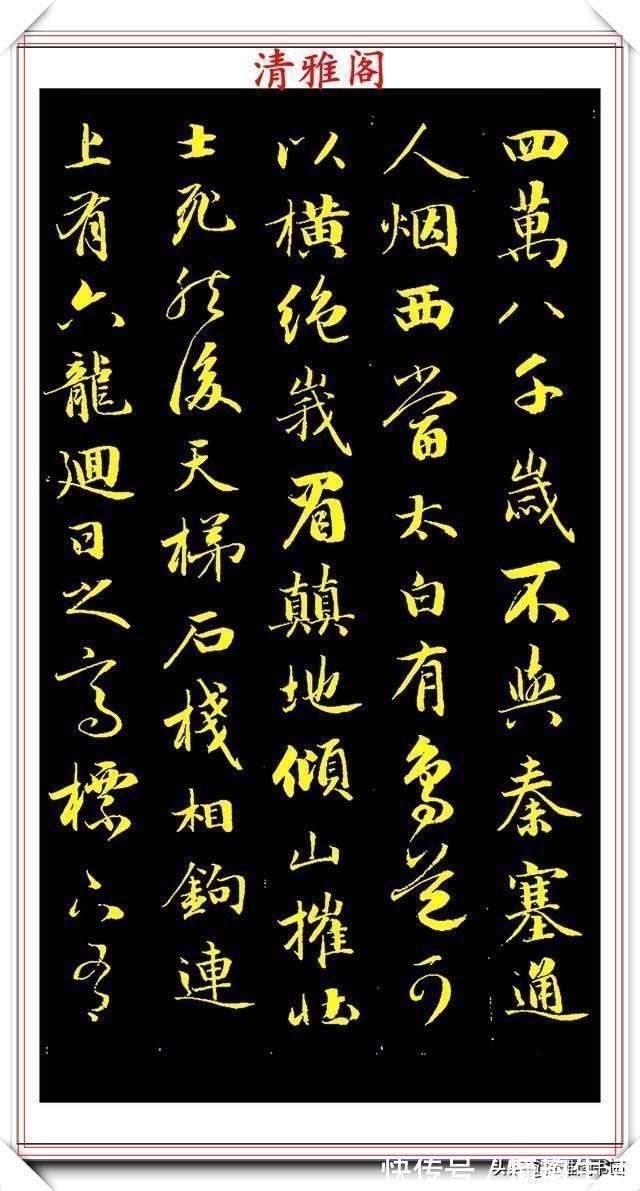 清雅阁
四萬八千歲不與秦塞通
人烟西當太白有鳥道可
以横絶峩眉巔地傾山摧壮
士死然後天梯石棧相鉤連
上有六龍迴日之高標下有
快传号